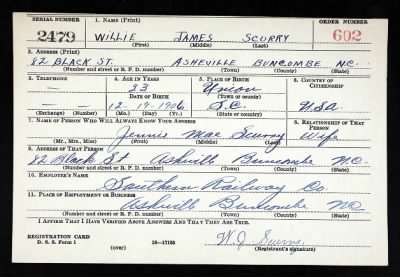 SERIAL NUMBER 1. NAME (Print) ORDER NUMBER
2479 WILLIE JAMES SCURRY 602
(First) (Middle) (Last)
2. ADDRESS (Print)
82 BLACK ST. ASHEVILLE BUNCOMBE N.C.
(Number and street or R. F. D. number) (Town) (County) (State)
3. TELEPHONE 4. AGE IN YEARS 5. PLACE OF BIRTH 6. COUNTRY OF CITIZENSHIP
— 33 Union
DATE OF BIRTH (Town or county)
— — 12-19-1906 S.C. U.S.A.
(Exchange) (Number) (Mo.) (Day) (Yr.) (State or country)
7. NAME OF PERSON WHO WILL ALWAYS KNOW YOUR ADDRESS 8. RELATIONSHIP OF THAT PERSON
Jennie Mae Scurry Wife
(Mr., Mrs., Miss) (First) (Middle) (Last)
9. ADDRESS OF THAT PERSON
82 Black St Ashville Buncombe N.C.
(Number and street or R. F. D. number) (Town) (County) (State)
10. EMPLOYER'S NAME
Southern Railway Co.
11. PLACE OF EMPLOYMENT OR BUSINESS
Ashvill Buncombe NC
(Number and street or R. F. D. number) (Town) (County) (State)
I AFFIRM THAT I HAVE VERIFIED ABOVE ANSWERS AND THAT THEY ARE TRUE.
REGISTRATION CARD
D. S. S. Form 1 (over) 16—17105 W. J. Scurry
(Registrant's signature)